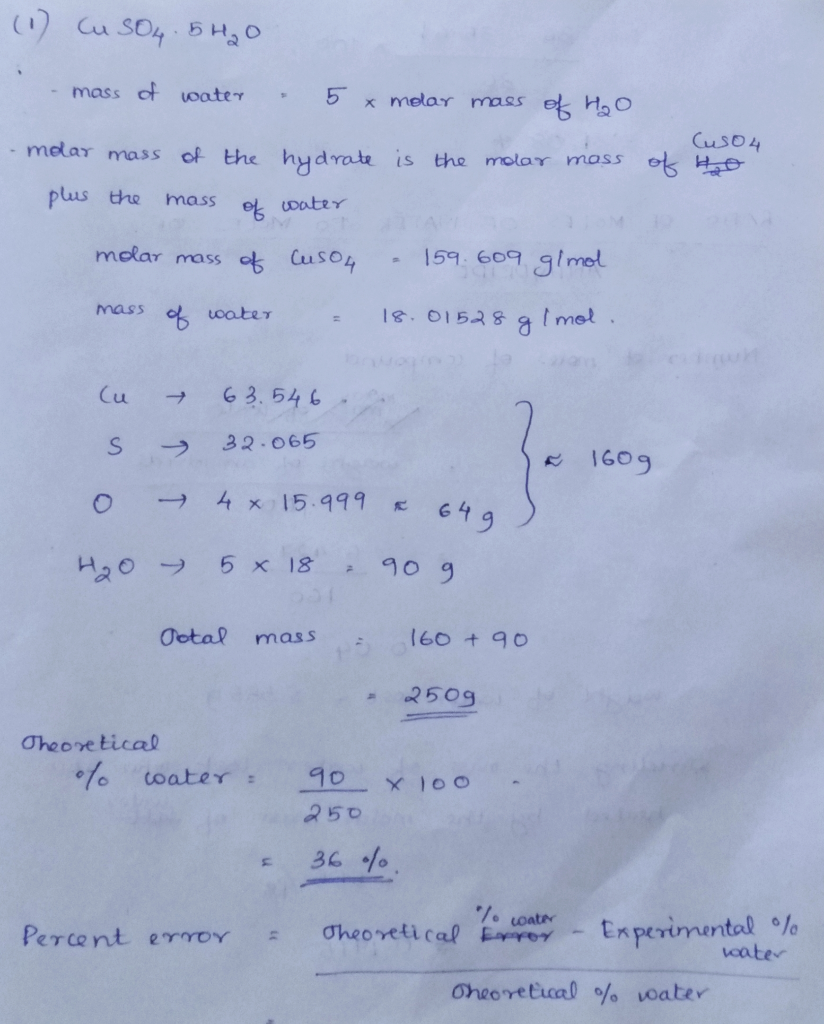 (1) CuSO4 . 5H2O
- mass of water = 5 x molar mass of H2O
- molar mass of the hydrate is the molar mass of H2O CuSO4
plus the mass of water
molar mass of CuSO4 = 159.609 g/mol
mass of water = 18.01528 g/mol.
Cu → 63.546
S → 32.065
≈ 160g
O → 4 x 15.999 ≈ 64g
H2O → 5 x 18 = 90 g
Total mass = 160 + 90
= 250g
Theoretical
% water = 90/250 x 100
= 36 %.
Percent error = Theoretical Error % water - Experimental % water
Theoretical % water